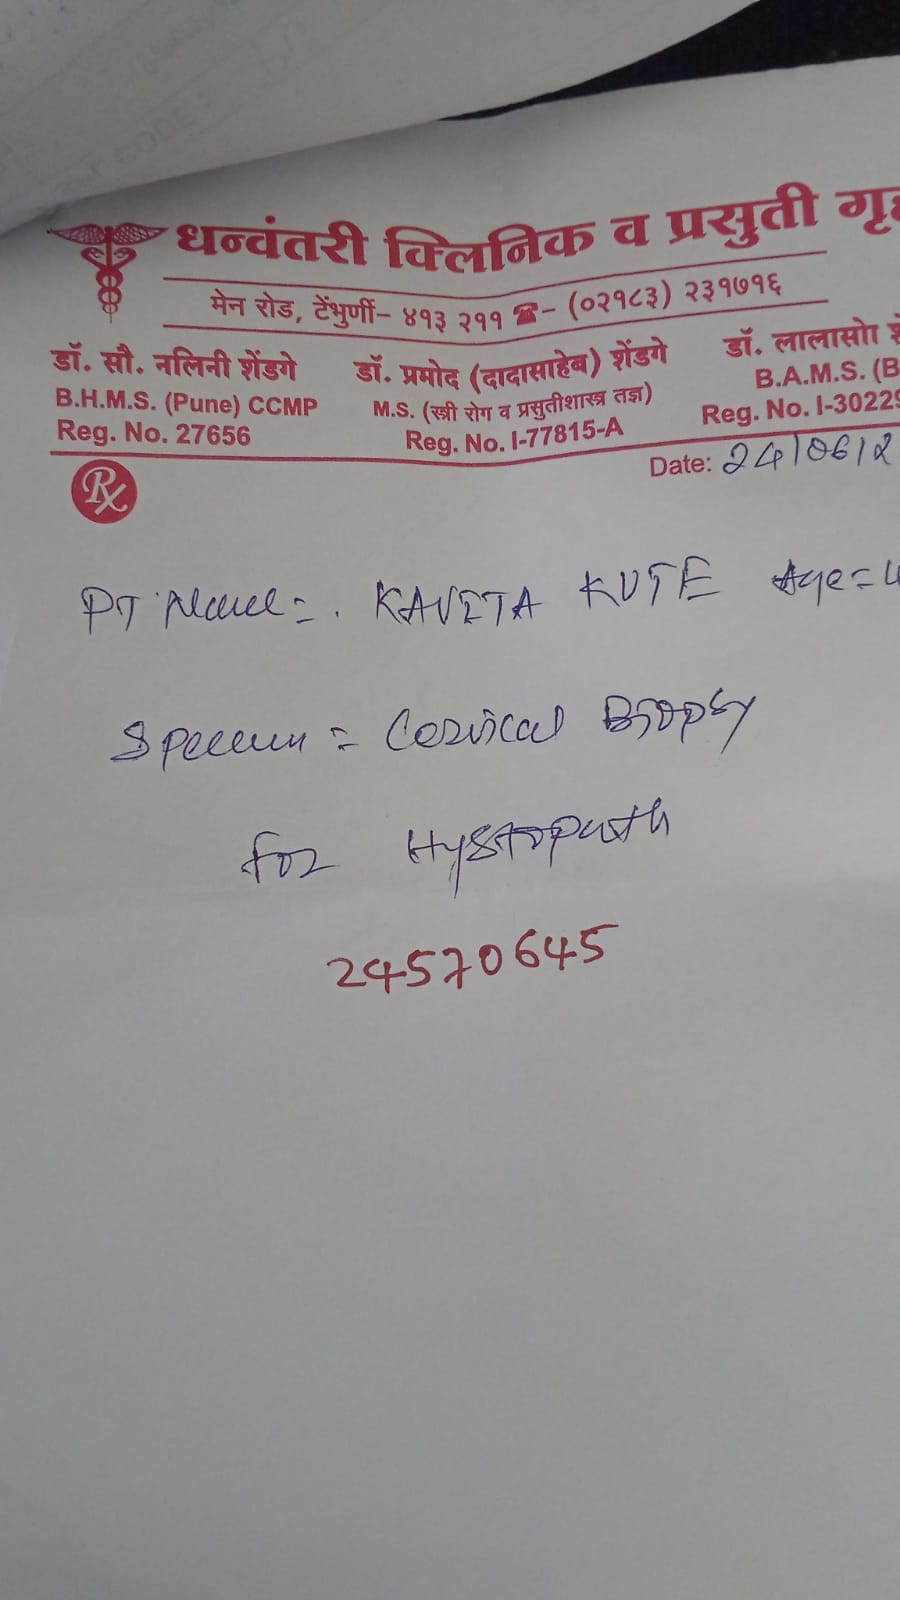 धन्वंतरी क्लिनिक व प्रसुती गृह
मेन रोड, टेंभुर्णी- ४१३ २११ ☎- (०२१८३) २३१७१६
डॉ. सौ. नलिनी शेंडगे
B.H.M.S. (Pune) CCMP
Reg. No. 27656
डॉ. प्रमोद (दादासाहेब) शेंडगे
M.S. (स्त्री रोग व प्रसुतीशास्त्र तज्ञ)
Reg. No. I-77815-A
डॉ. लालासो
B.A.M.S. (B
Reg. No. I-30229
Date: 24/06/2
Rx
PT Name =. KAVITA KUTE Age = 4
Specimen = Cervical Biopsy
for Hystopath
24570645